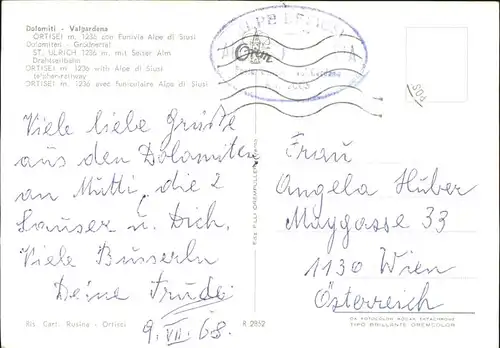 Dolomiti - Valgardena
ORTISEI m. 1236 con Funivia Alpe di Siusi
Dolomiten - Grödnertal
ST. ULRICH 1236 m. mit Seiser Alm
Drahtseilbahn
ORTISEI m. 1236 with Alpe di Siusi
telpher-railway
ORTISEI m. 1236 avec funiculaire Alpe di Siusi
ALPE DI SIUSI
POS
Viele liebe Grüße
aus den Dolomiten
an Mutti, die 2
Lauser u. Dich.
Viele Busserln
Deine Trude
9. VII. 68.
Frau
Angela Huber
Maygasse 33
1130 Wien
Österreich
Ris. Cart. Rusina - Ortisei
R 2852
DA FOTOCOLOR KODAK EKTACHROME
TIPO BRILLANTE GREMCOLOR